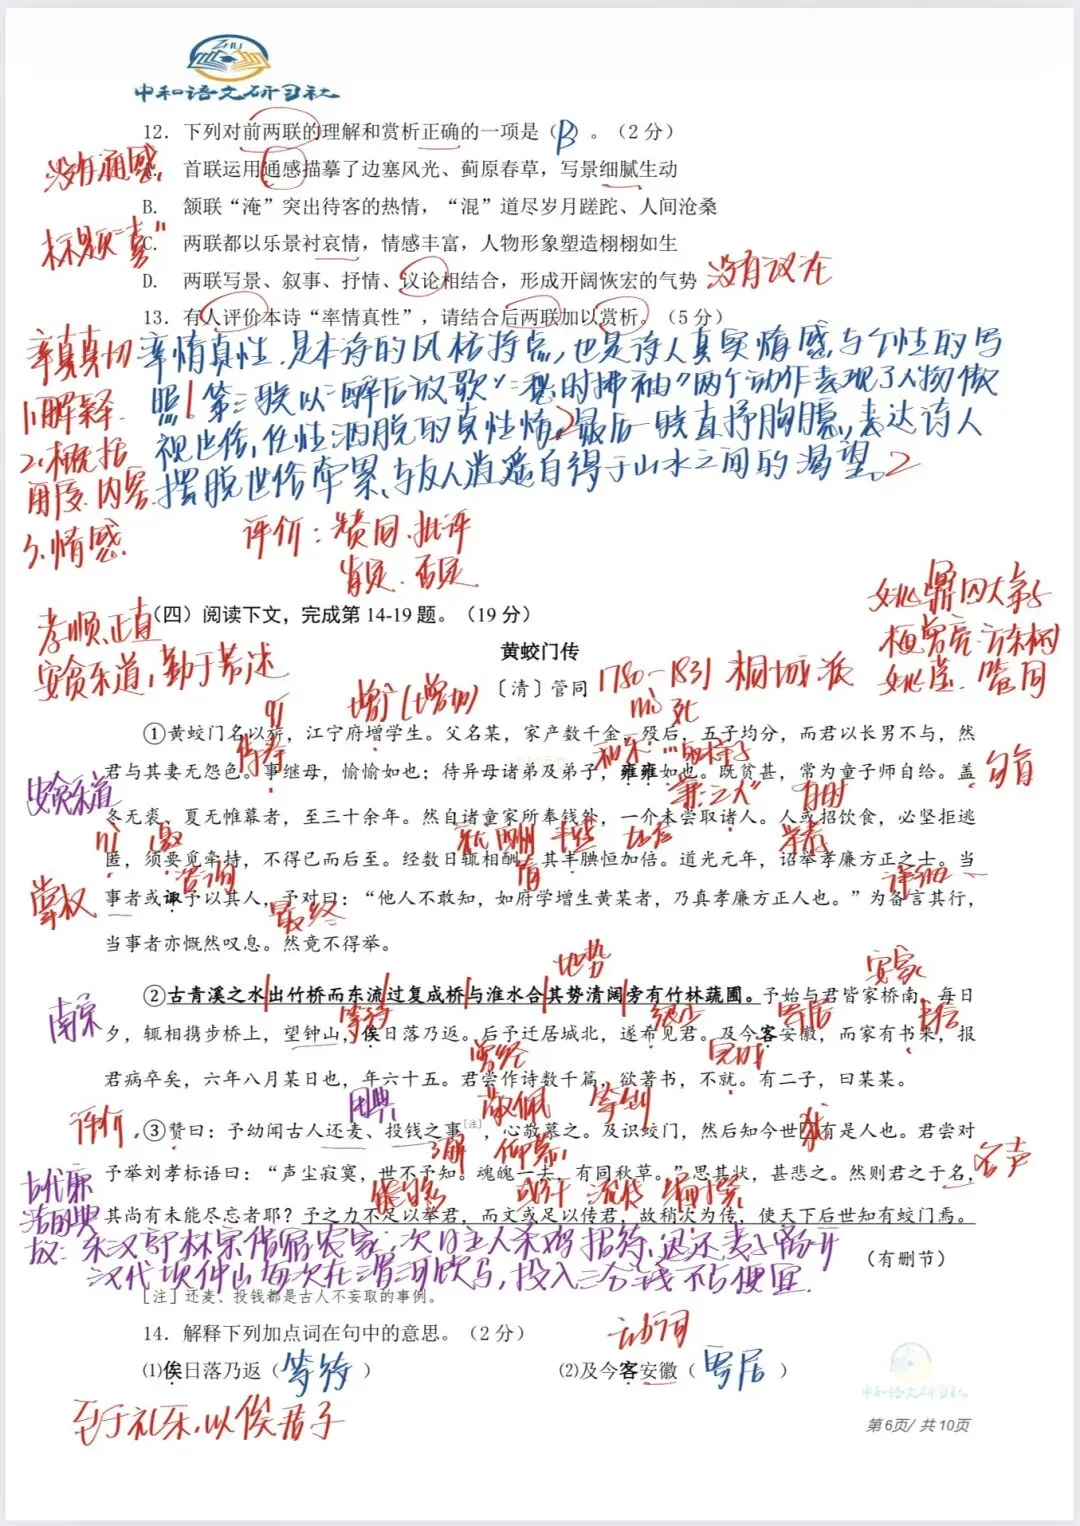 ZHU
中和语文研习社
12. 下列对前两联的理解和赏析正确的一项是（B）。（2 分）
没有通感
A. 首联运用通感描摹了边塞风光、蓟原春草，写景细腻生动
B. 颔联“淹”突出待客的热情，“混”道尽岁月蹉跎、人间沧桑
标题“喜”
C. 两联都以乐景衬哀情，情感丰富，人物形象塑造栩栩如生
D. 两联写景、叙事、抒情、议论相结合，形成开阔恢宏的气势
没有议论
13. 有人评价本诗“率情真性”，请结合后两联加以赏析。（5 分）
率情真性，是本诗的风格特点，也是诗人真实情感与个性的写
照！第三联以“醉后放歌”“愁时拂袖”两个动作表现了人物傲
视世俗，任性洒脱的真性情。2最后一联直抒胸臆，表达诗人
摆脱世俗牵累、与友人逍遥自得于山水之间的渴望。2
1.解释
2.概括
角度、内容
3.情感
评价：赞同、批评
肯定、否定
（四）阅读下文，完成第 14-19 题。（19 分）
孝顺、正直
安贫乐道，勤于著述
姚鼐四大弟子
梅曾亮、方东树
姚莹、管同
黄蛟门传
〔清〕管同
1780—1831 桐城派
增广（增加）
死
①黄蛟门名以旂，江宁府增学生。父名某，家产数千金，殁后，五子均分，而君以长男不与，然
君与其妻无怨色。事继母，愉愉如也；待异母诸弟及弟子，雍雍如也。既贫甚，常为童子师自给。盖
侍奉
句首
安贫乐道
冬无裘、夏无帷幕者，至三十余年。然自诸童家所奉钱外，一介未尝取诸人。人或招饮食，必坚拒逃
有时
匿，须要觅牵持，不得已而后至。经数日辄相酬，其丰腆恒加倍。道光元年，诏举孝廉方正之士。当
邀
咨询
详细
掌权
事者或诹予以其人，予对曰：“他人不敢知，如府学增生黄某者，乃真孝廉方正人也。”为备言其行，
最终
当事者亦慨然叹息。然竟不得举。
地势
安家
②古青溪之水出竹桥而东流过复成桥与淮水合其势清阔旁有竹林蔬圃。予始与君皆家桥南，每日
南京
等待
寄居
书信
夕，辄相携步桥上，望钟山，俟日落乃返。后予迁居城北，遂希见君。及今客安徽，而家有书来，报
曾经
完成
君病卒矣，六年八月某日也，年六十五。君尝作诗数千篇，欲著书，不就。有二子，曰某某。
用典
敬佩
等到
评价
③赞曰：予幼闻古人还麦、投钱之事[注]，心敬慕之。及识蛟门，然后知今世固有是人也。君尝对
了解
仰慕
名声
予举刘孝标语曰：“声尘寂寞，世不予知。魂魄一去，有同秋草。”思其状，甚悲之。然则君之于名，
或许
流传
其尚有未能尽忘者耶？予之力不足以举君，而文或足以传君，故稍次为传，使天下后世知有蛟门焉。
（有删节）
古代廉洁的典故：东汉郭林宗借宿农家，次日主人杀鸡招待，
汉代项仲山每次在渭河饮马，投入三分钱不占便宜.
[注] 还麦、投钱都是古人不妄取的事例。
14. 解释下列加点词在句中的意思。（2 分）
动词
⑴俟日落乃返（等待）
⑵及今客安徽（寄居）
至于礼乐，以俟君子
中和语文研习社
第6页/ 共10页